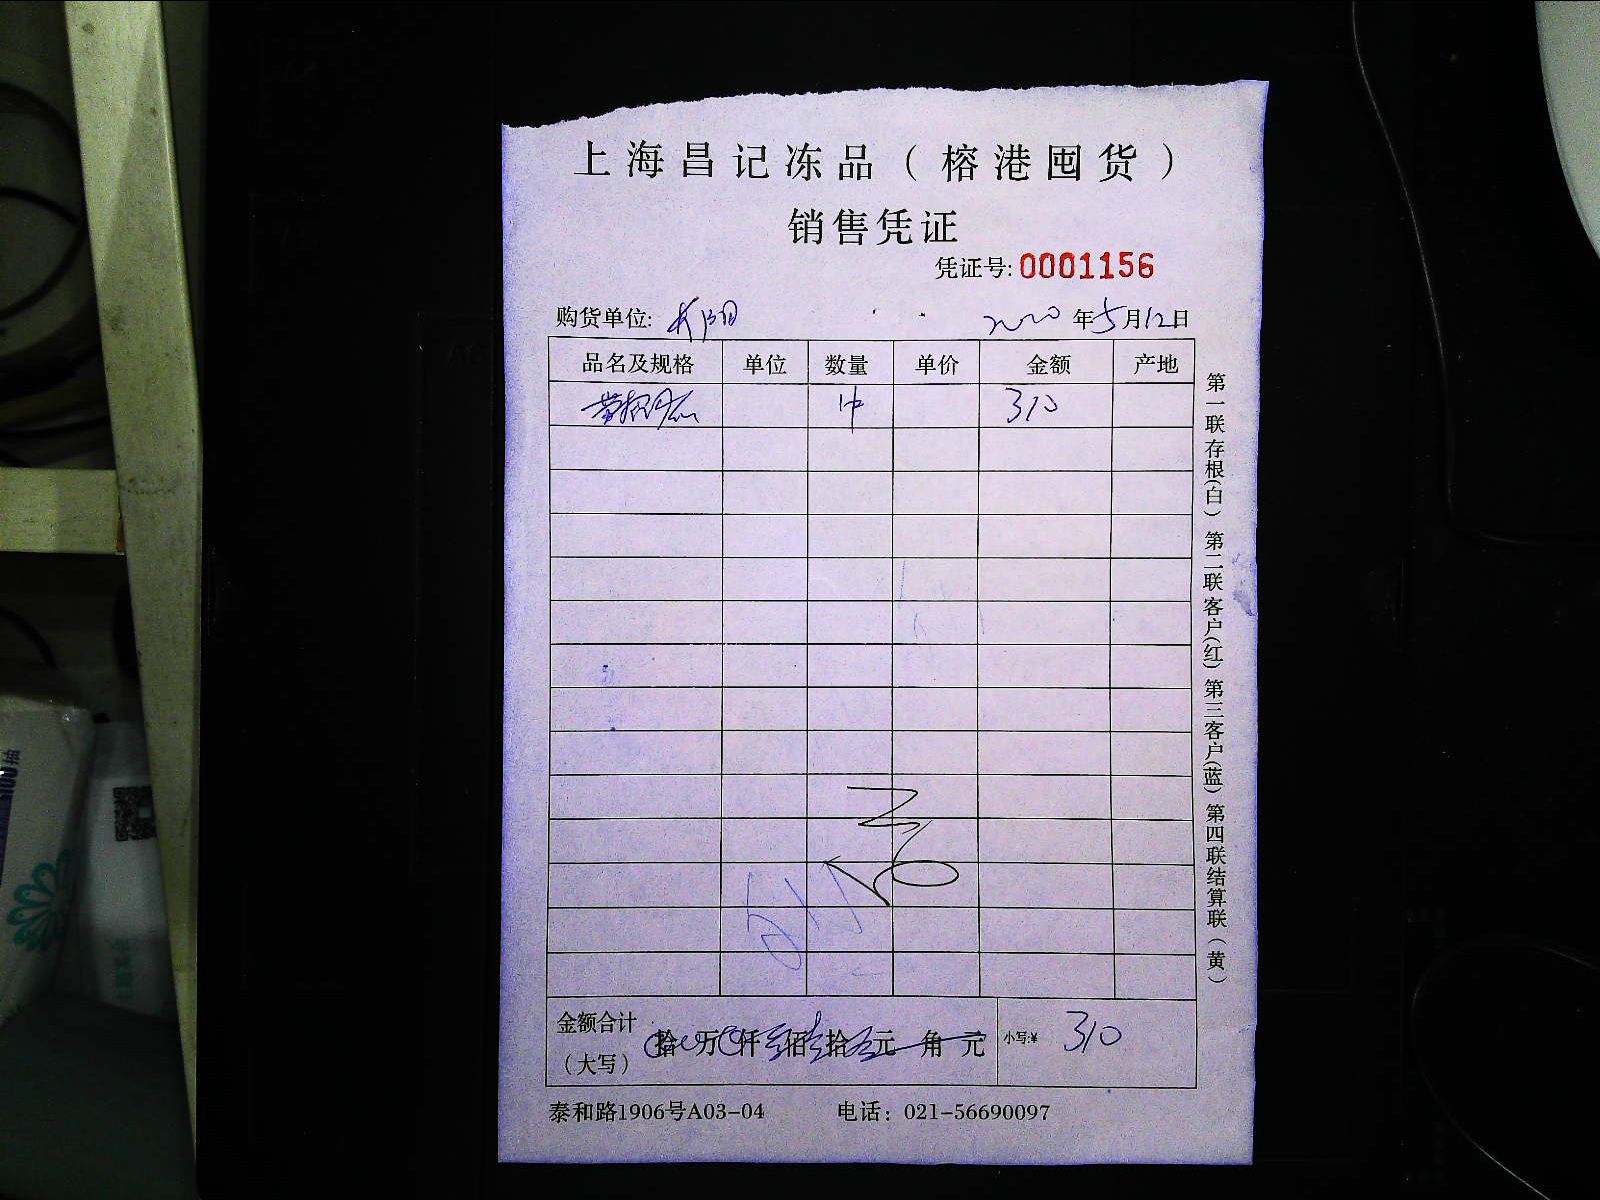 上海昌记冻品（榕港囤货）
销售凭证
凭证号:0001156
购货单位: 2020年5月12日
品名及规格 单位 数量 单价 金额 产地
1件 310
金额合计
（大写） 拾 万 仟 佰 拾 元 角 元 小写:¥ 310
泰和路1906号A03-04 电话：021-56690097
第一联存根(白) 第二联客户(红) 第三客户(蓝) 第四联结算联(黄)
100抽